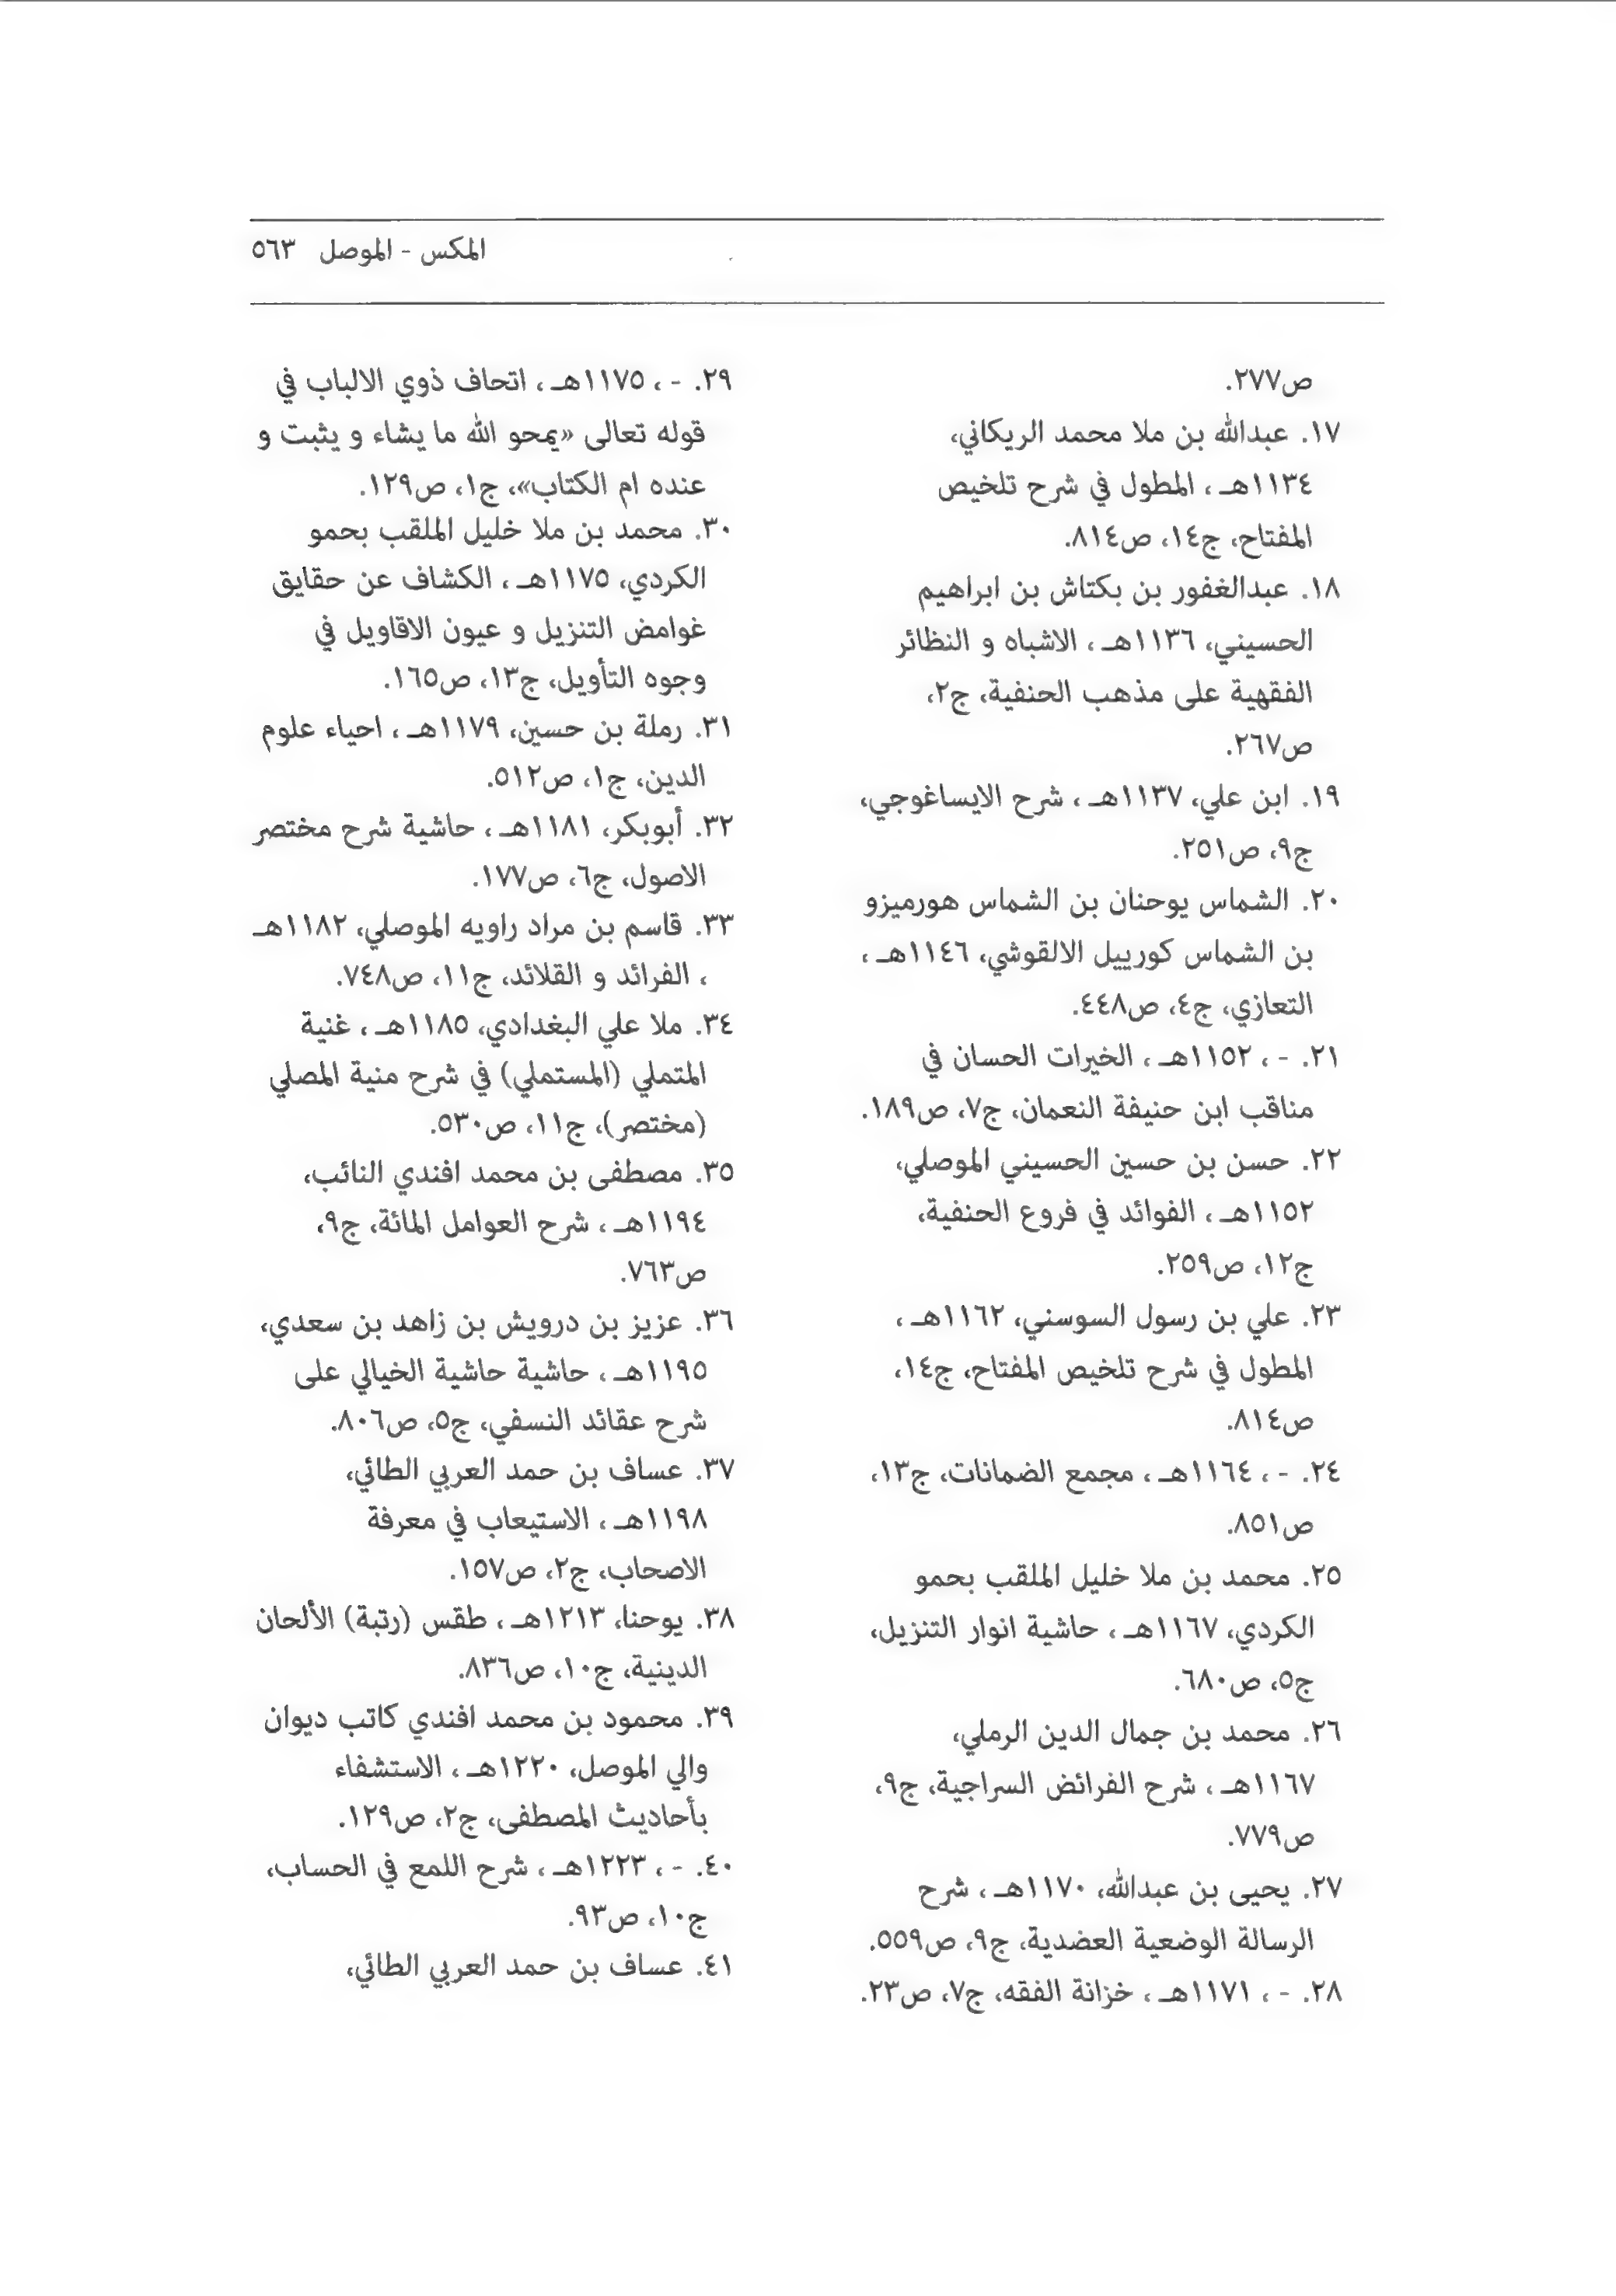 المكس - الموصل ٥٦٣
ص٢٧٧.
١٧. عبدالله بن ملا محمد الريكاني،
١١٣٤هـ ، المطول في شرح تلخيص
المفتاح، ج١٤، ص٨١٤.
١٨. عبدالغفور بن بكتاش بن ابراهيم
الحسيني، ١١٣٦هـ ، الاشباه و النظائر
الفقهية على مذهب الحنفية، ج٢،
ص٢٦٧.
١٩. ابن علي، ١١٣٧هـ ، شرح الايساغوجي،
ج٩، ص٢٥١.
٢٠. الشماس يوحنان بن الشماس هورميزو
بن الشماس كورييل الالقوشي، ١١٤٦هـ ،
التعازي، ج٤، ص٤٤٨.
٢١. - ، ١١٥٢هـ ، الخيرات الحسان في
مناقب ابن حنيفة النعمان، ج٧، ص١٨٩.
٢٢. حسن بن حسين الحسيني الموصلي،
١١٥٢هـ ، الفوائد في فروع الحنفية،
ج١٢، ص٢٥٩.
٢٣. علي بن رسول السوسني، ١١٦٢هـ ،
المطول في شرح تلخيص المفتاح، ج١٤،
ص٨١٤.
٢٤. - ، ١١٦٤هـ ، مجمع الضمانات، ج١٣،
ص٨٥١.
٢٥. محمد بن ملا خليل الملقب بحمو
الكردي، ١١٦٧هـ ، حاشية انوار التنزيل،
ج٥، ص٦٨٠.
٢٦. محمد بن جمال الدين الرملي،
١١٦٧هـ ، شرح الفرائض السراجية، ج٩،
ص٧٧٩.
٢٧. يحيى بن عبدالله، ١١٧٠هـ ، شرح
الرسالة الوضعية العضدية، ج٩، ص٥٥٩.
٢٨. - ، ١١٧١هـ ، خزانة الفقه، ج٧، ص٢٣.
٢٩. - ، ١١٧٥هـ ، اتحاف ذوي الالباب في
قوله تعالى «يمحو الله ما يشاء و يثبت و
عنده ام الكتاب»، ج١، ص١٢٩.
٣٠. محمد بن ملا خليل الملقب بحمو
الكردي، ١١٧٥هـ ، الكشاف عن حقايق
غوامض التنزيل و عيون الاقاويل في
وجوه التأويل، ج١٣، ص١٦٥.
٣١. رملة بن حسين، ١١٧٩هـ ، احياء علوم
الدين، ج١، ص٥١٢.
٣٢. أبوبكر، ١١٨١هـ ، حاشية شرح مختصر
الاصول، ج٦، ص١٧٧.
٣٣. قاسم بن مراد راويه الموصلي، ١١٨٢هـ
، الفرائد و القلائد، ج١١، ص٧٤٨.
٣٤. ملا علي البغدادي، ١١٨٥هـ ، غنية
المتملي (المستملي) في شرح منية المصلي
(مختصر)، ج١١، ص٥٣٠.
٣٥. مصطفى بن محمد افندي النائب،
١١٩٤هـ ، شرح العوامل المائة، ج٩،
ص٧٦٣.
٣٦. عزيز بن درويش بن زاهد بن سعدي،
١١٩٥هـ ، حاشية حاشية الخيالي على
شرح عقائد النسفي، ج٥، ص٨٠٦.
٣٧. عساف بن حمد العربي الطائي،
١١٩٨هـ ، الاستيعاب في معرفة
الاصحاب، ج٢، ص١٥٧.
٣٨. يوحنا، ١٢١٣هـ ، طقس (رتبة) الألحان
الدينية، ج١٠، ص٨٣٦.
٣٩. محمود بن محمد افندي كاتب ديوان
والي الموصل، ١٢٢٠هـ ، الاستشفاء
بأحاديث المصطفى، ج٢، ص١٢٩.
٤٠. - ، ١٢٢٣هـ ، شرح اللمع في الحساب،
ج١٠، ص٩٣.
٤١. عساف بن حمد العربي الطائي،